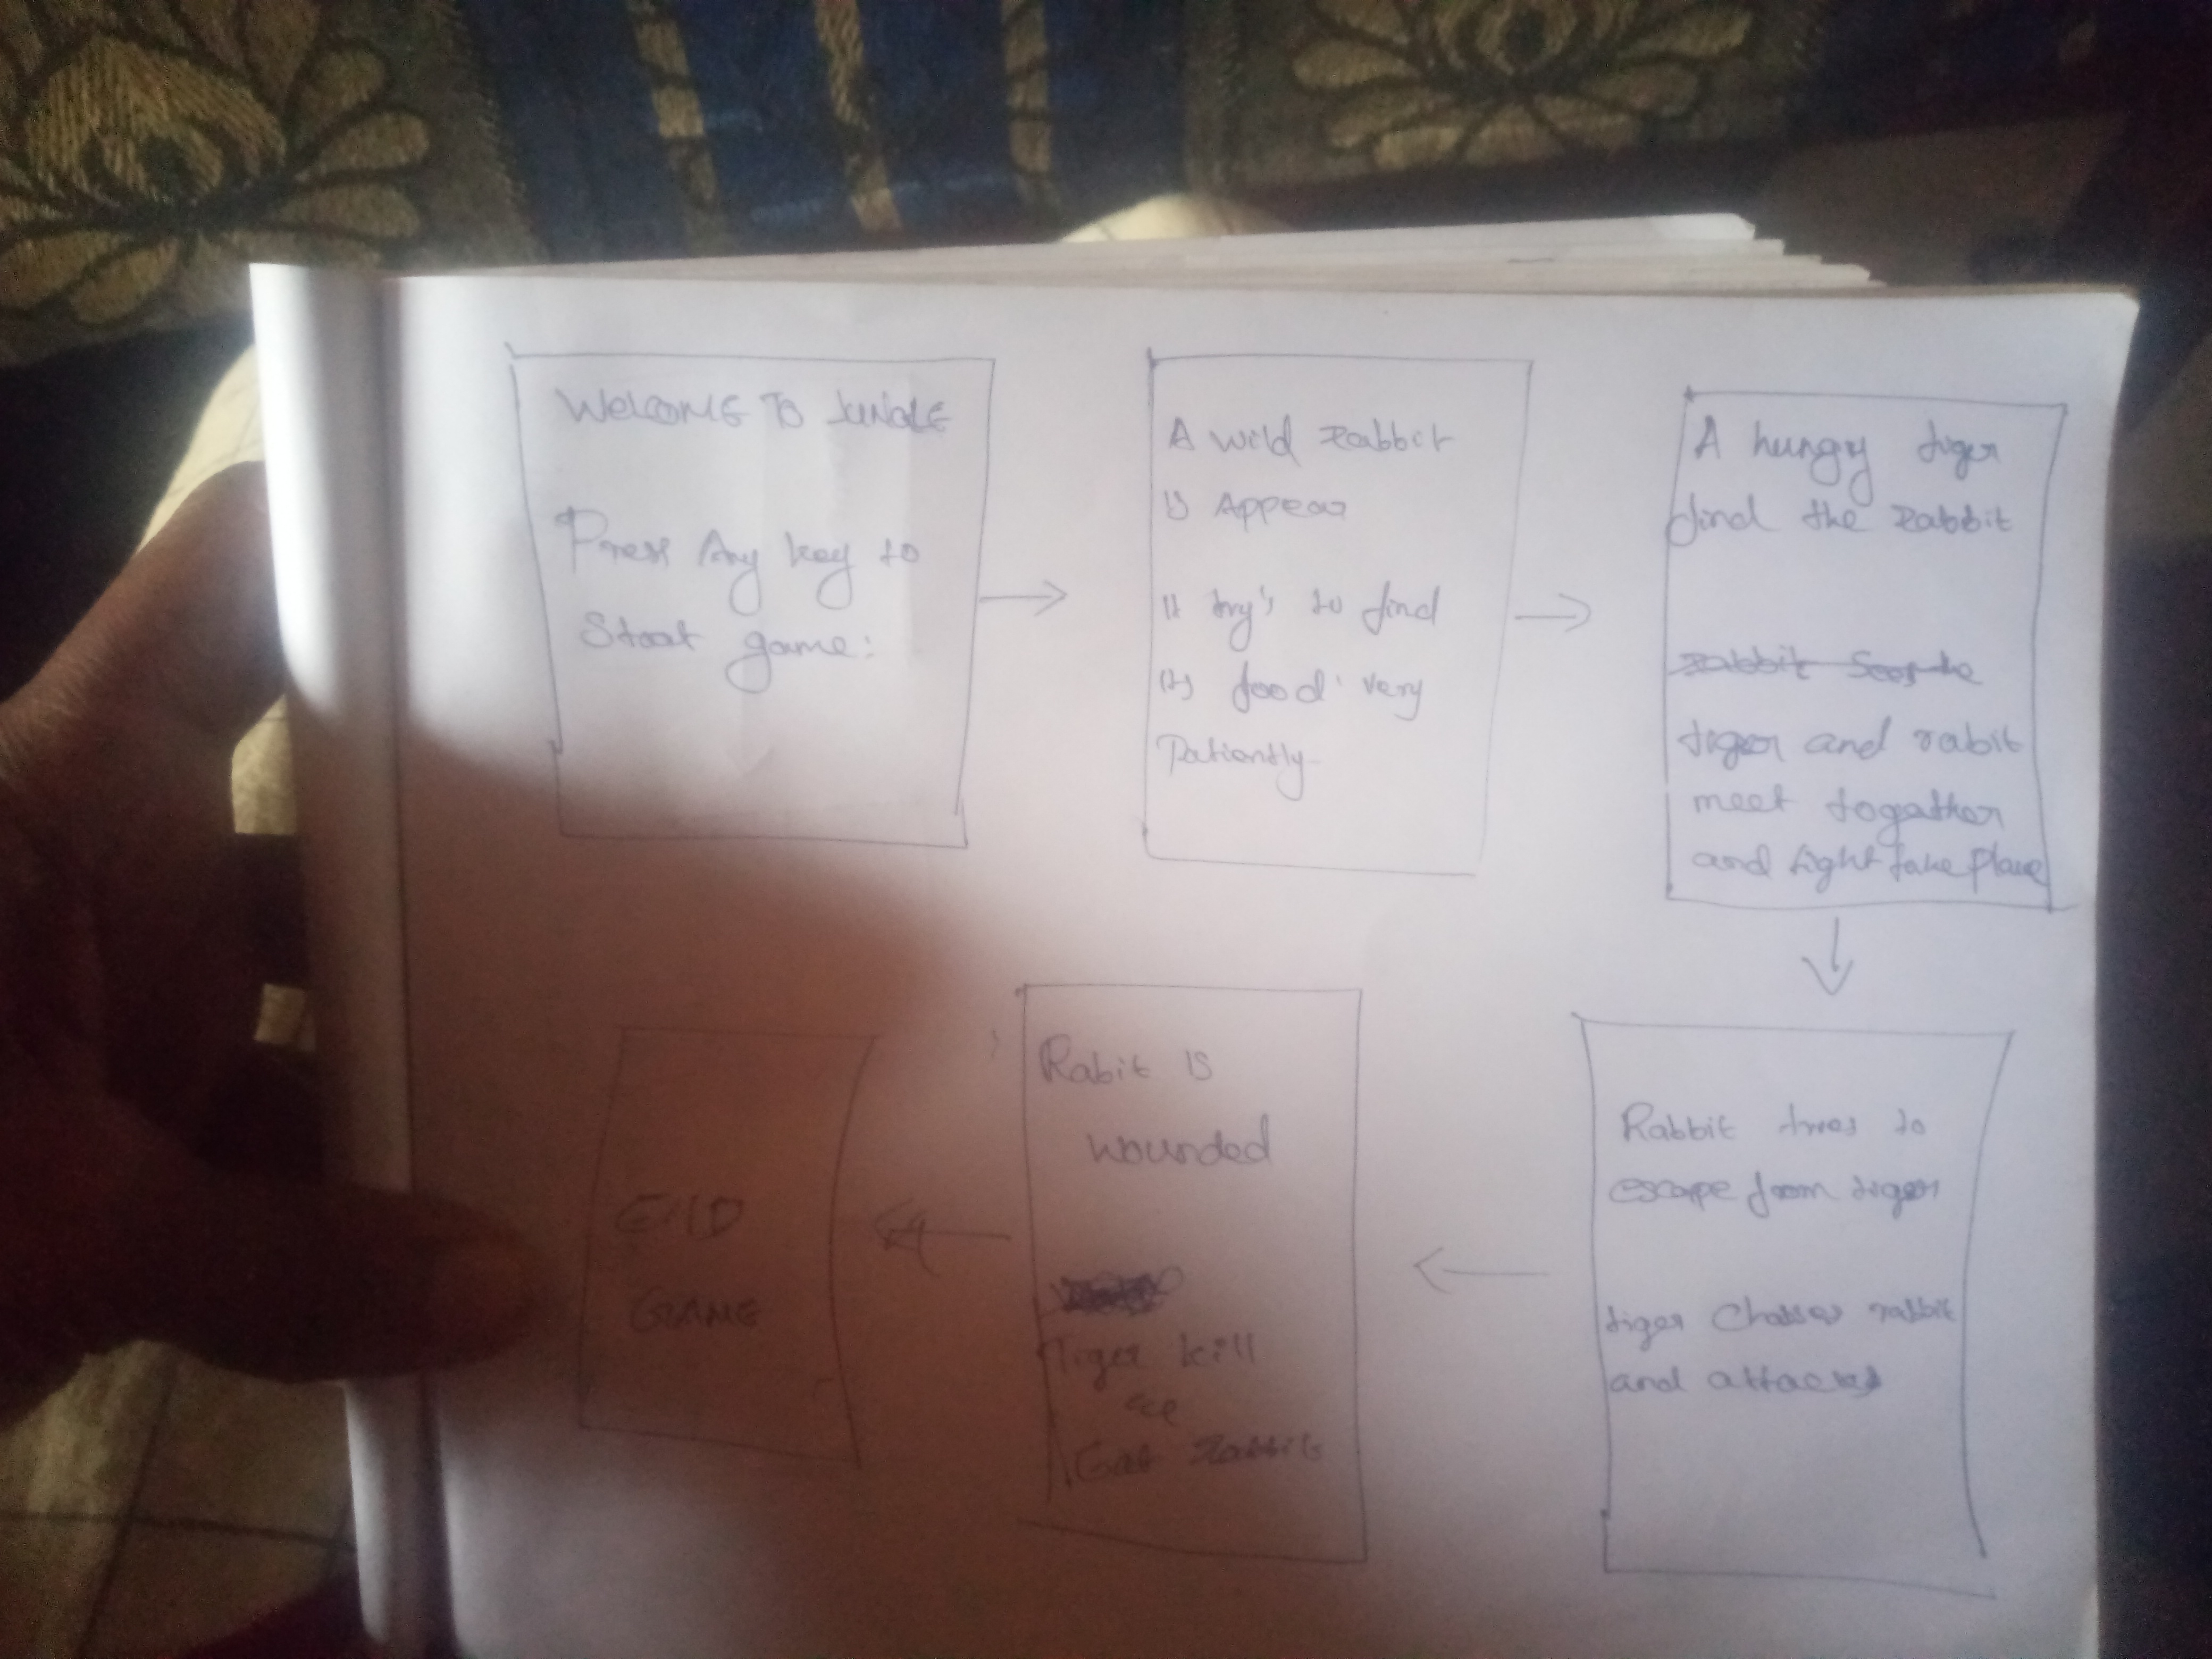 WELCOME TO JUNGLE
Press Any key to
Start game:
A wild rabbit
is Appear
It try's to find
its food very
Patiently
A hungry tiger
find the rabbit
tiger and rabit
meet togather
and fight take place
Rabbit tries to
escape from tiger
tiger Chases rabbit
and attacks
Rabit is
wounded
Tiger kill
Eat rabbit
END
GAME